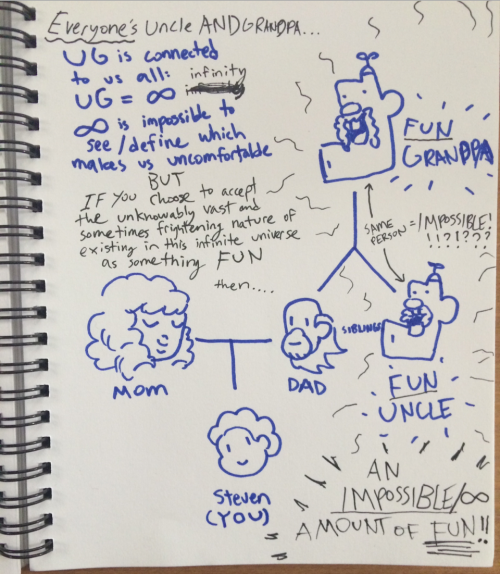 Everyone's Uncle AND GRANDPA...
UG is connected
to us all: infinity
UG = ∞
∞ is impossible to
see/define which
makes us uncomfortable
BUT
IF YOU choose to accept
the unknowably vast and
sometimes frightening nature of
existing in this infinite universe
as something FUN
then....
FUN
GRANDPA
SAME
PERSON = IMPOSSIBLE!
!!?!???
SIBLINGS
MOM
DAD
FUN
UNCLE
Steven
(YOU)
AN
IMPOSSIBLE/∞
AMOUNT OF FUN!!